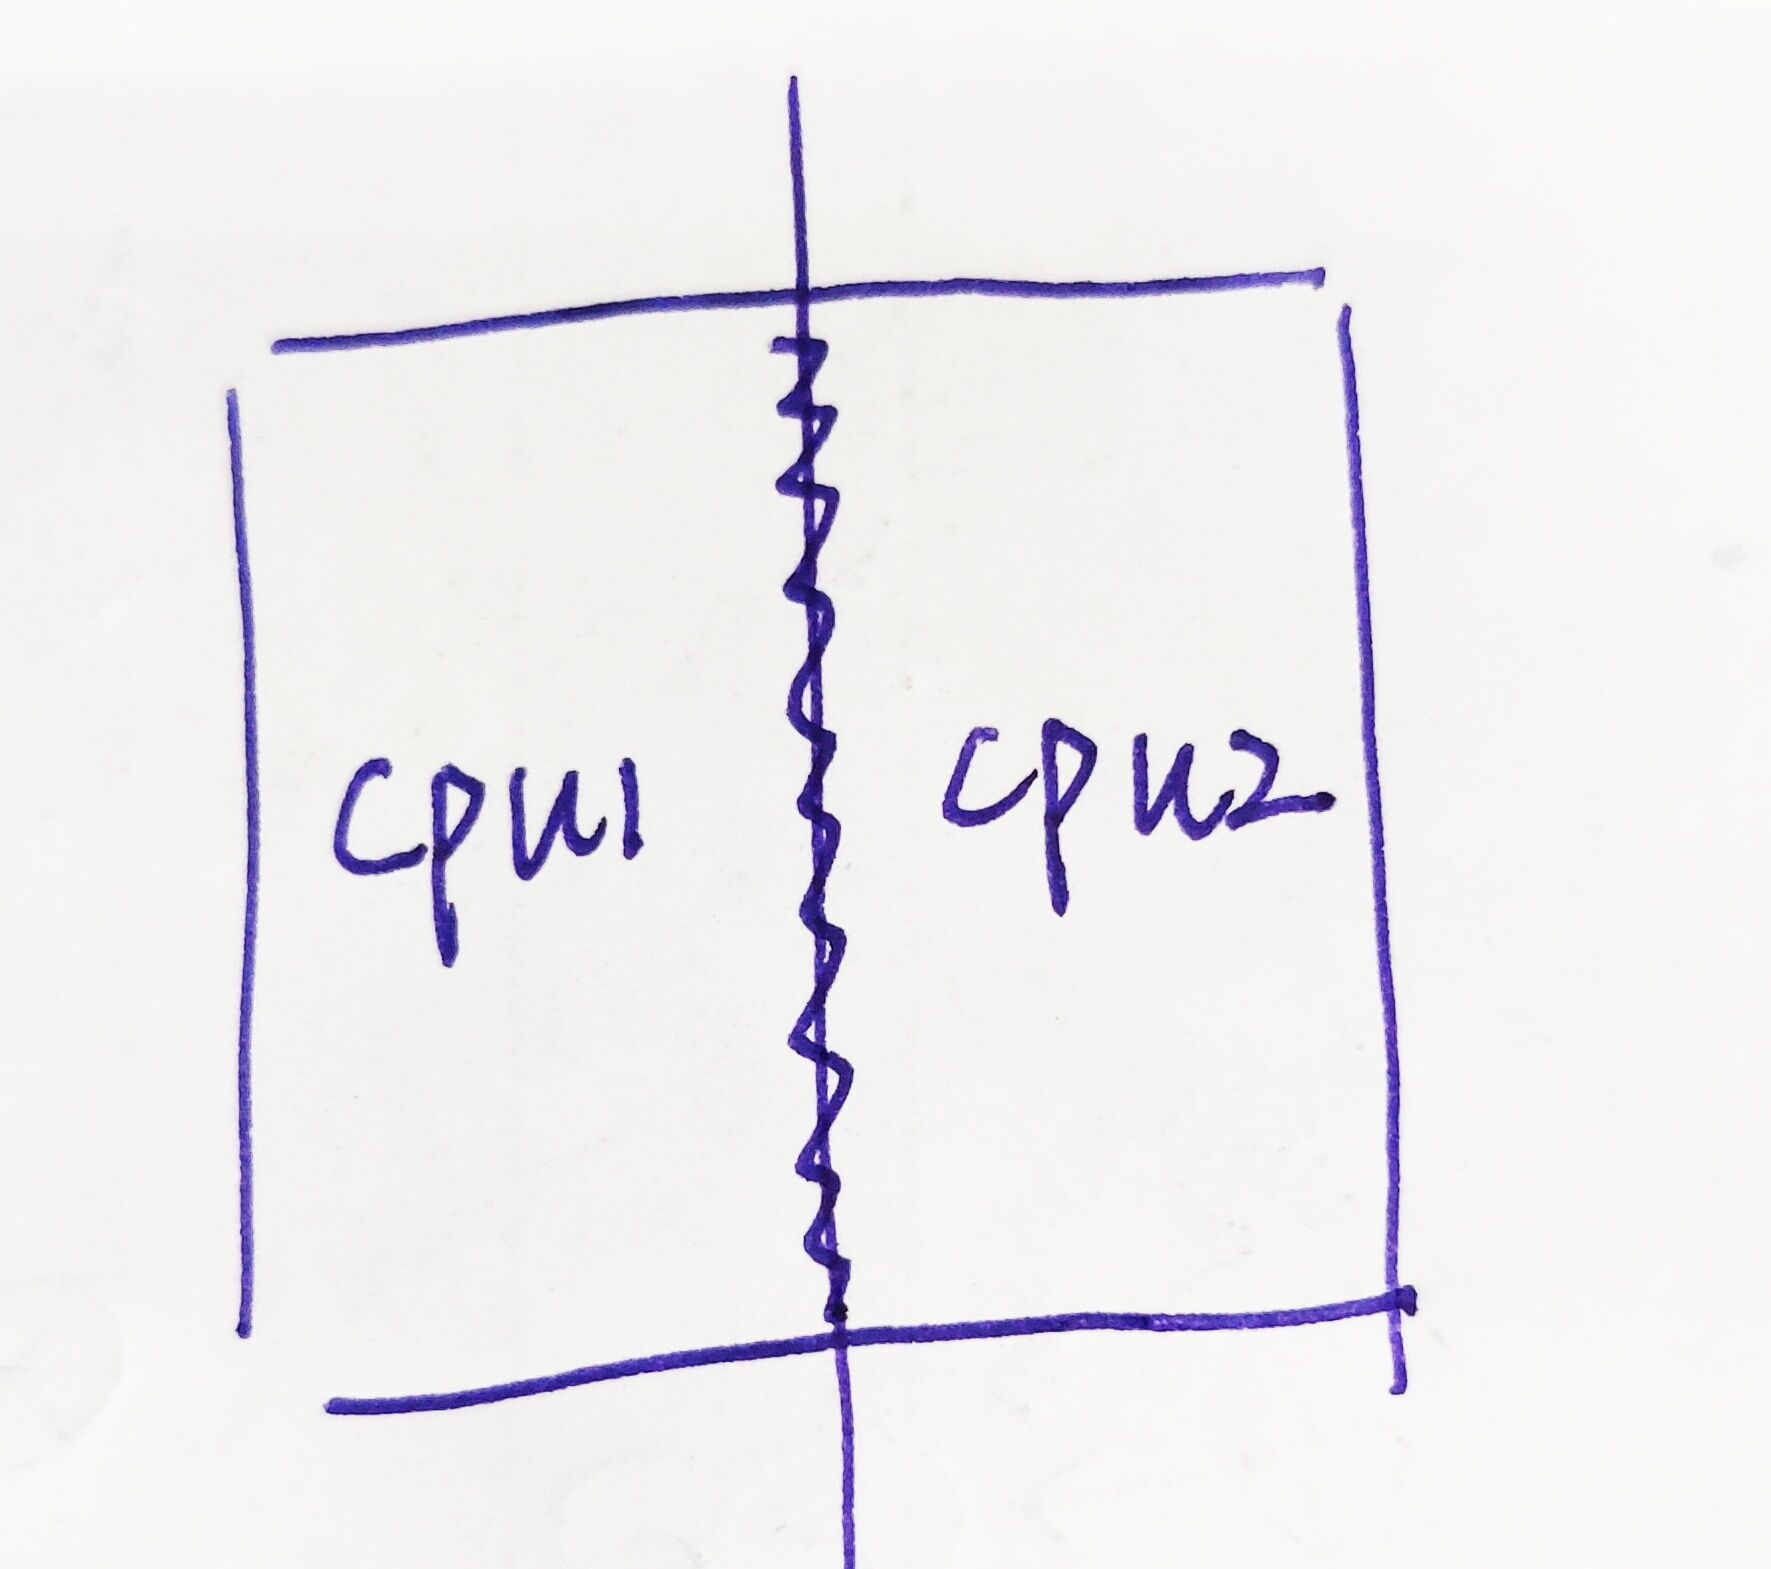 cpu1 cpu2